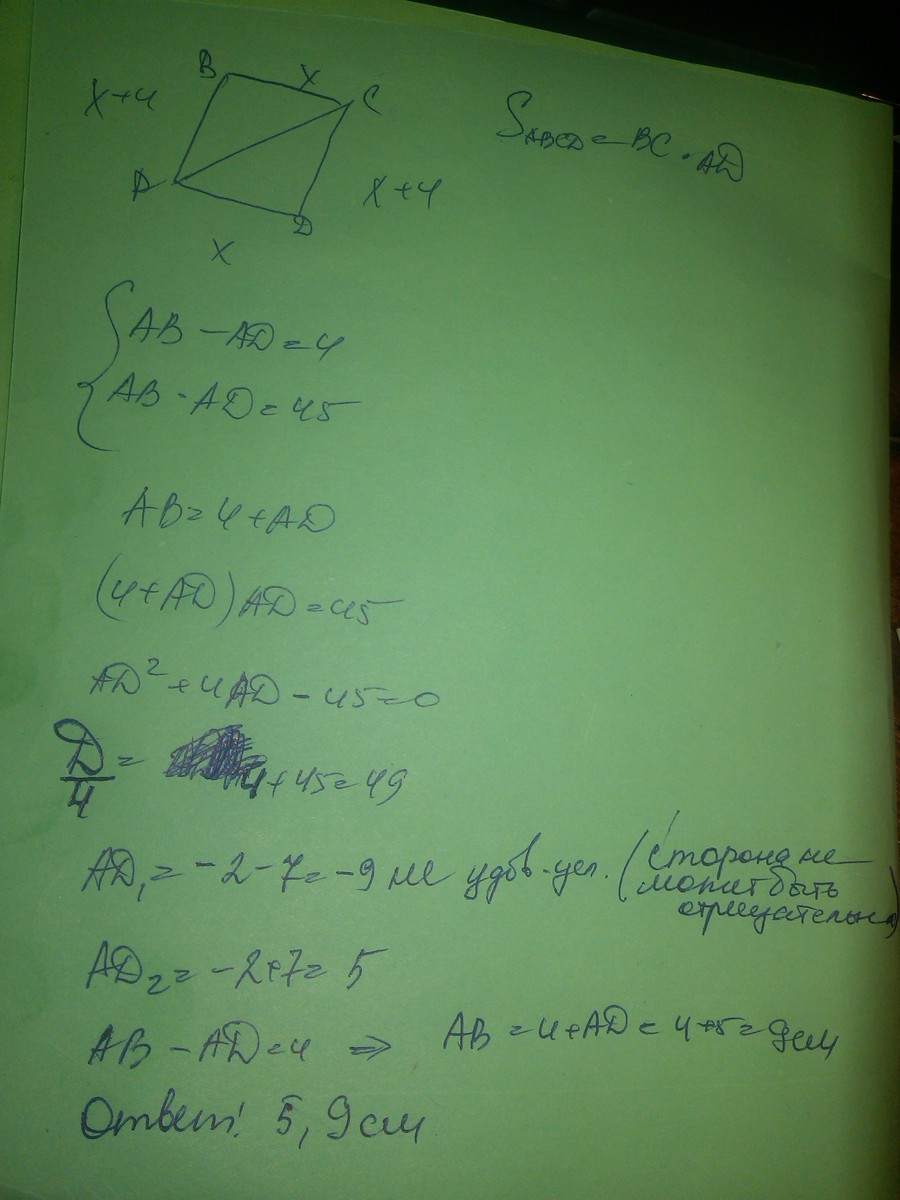 B
x
C
x+4
A
x+4
D
x
S_ABCD = BC · AD
{ AB − AD = 4
AB · AD = 45
AB = 4 + AD
(4 + AD) AD = 45
AD² + 4AD − 45 = 0
D/4 = 4 + 45 = 49
AD₁ = −2 − 7 = −9 не удов. усл. (сторона не
может быть
отрицательна)
AD₂ = −2 + 7 = 5
AB − AD = 4 ⇒ AB = 4 + AD = 4 + 5 = 9 см
Ответ: 5, 9 см